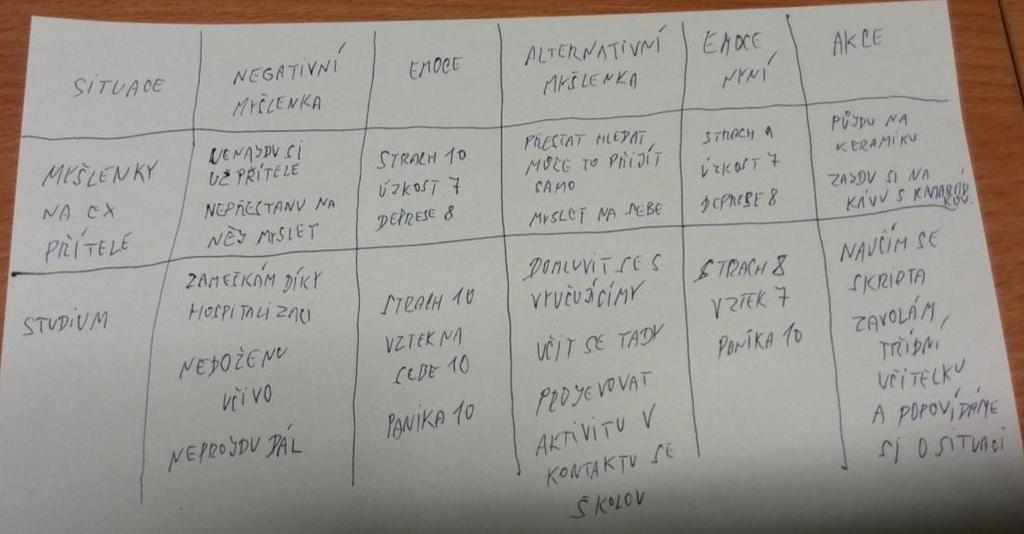 SITUACE
NEGATIVNÍ
MYŠLENKA
EMOCE
ALTERNATIVNÍ
MYŠLENKA
EMOCE
NYNÍ
AKCE
MYŠLENKY
NA EX
PŘÍTELE
NENAJDU SI
UŽ PŘÍTELE
NEPŘESTANU NA
NĚJ MYSLET
STRACH 10
ÚZKOST 7
DEPRESE 8
PŘESTAT HLEDAT
MŮŽE TO PŘIJÍT
SAMO
MYSLET NA SEBE
STRACH 9
ÚZKOST 7
DEPRESE 8
PŮJDU NA
KERAMIKU
ZAJDU SI NA
KÁVU S
STUDIUM
ZAMEŠKÁM DÍKY
HOSPITALIZACI
NEDOŽENU
UČIVO
NEPROJDU DÁL
STRACH 10
VZTEK NA
SEBE 10
PANIKA 10
DOMLUVIT SE S
VYUČUJÍCÍMY
UČIT SE TADY
PROJEVOVAT
AKTIVITU V
KONTAKTU SE
ŠKOLOU
STRACH 8
VZTEK 7
PANIKA 10
NAUČÍM SE
SKRIPTA
ZAVOLÁM
TŘÍDNÍ
UČITELKU
A POPOVÍDÁME
SI O SITUACI